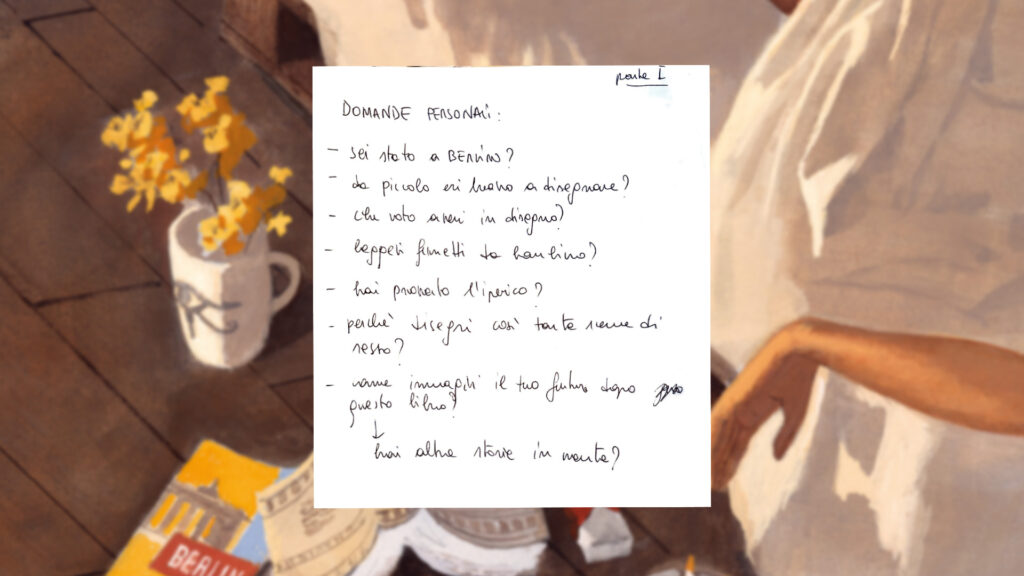 parte I
DOMANDE PERSONALI:
- sei stato a BERLINO?
- da piccolo eri bravo a disegnare?
- che voto avevi in disegno?
- leggevi fumetti da bambino?
- hai provato l'iperico?
- perchè disegni così tante scene di
sesso?
- come immagini il tuo futuro dopo
questo libro?
↓
hai altre storie in mente?
BERLIN